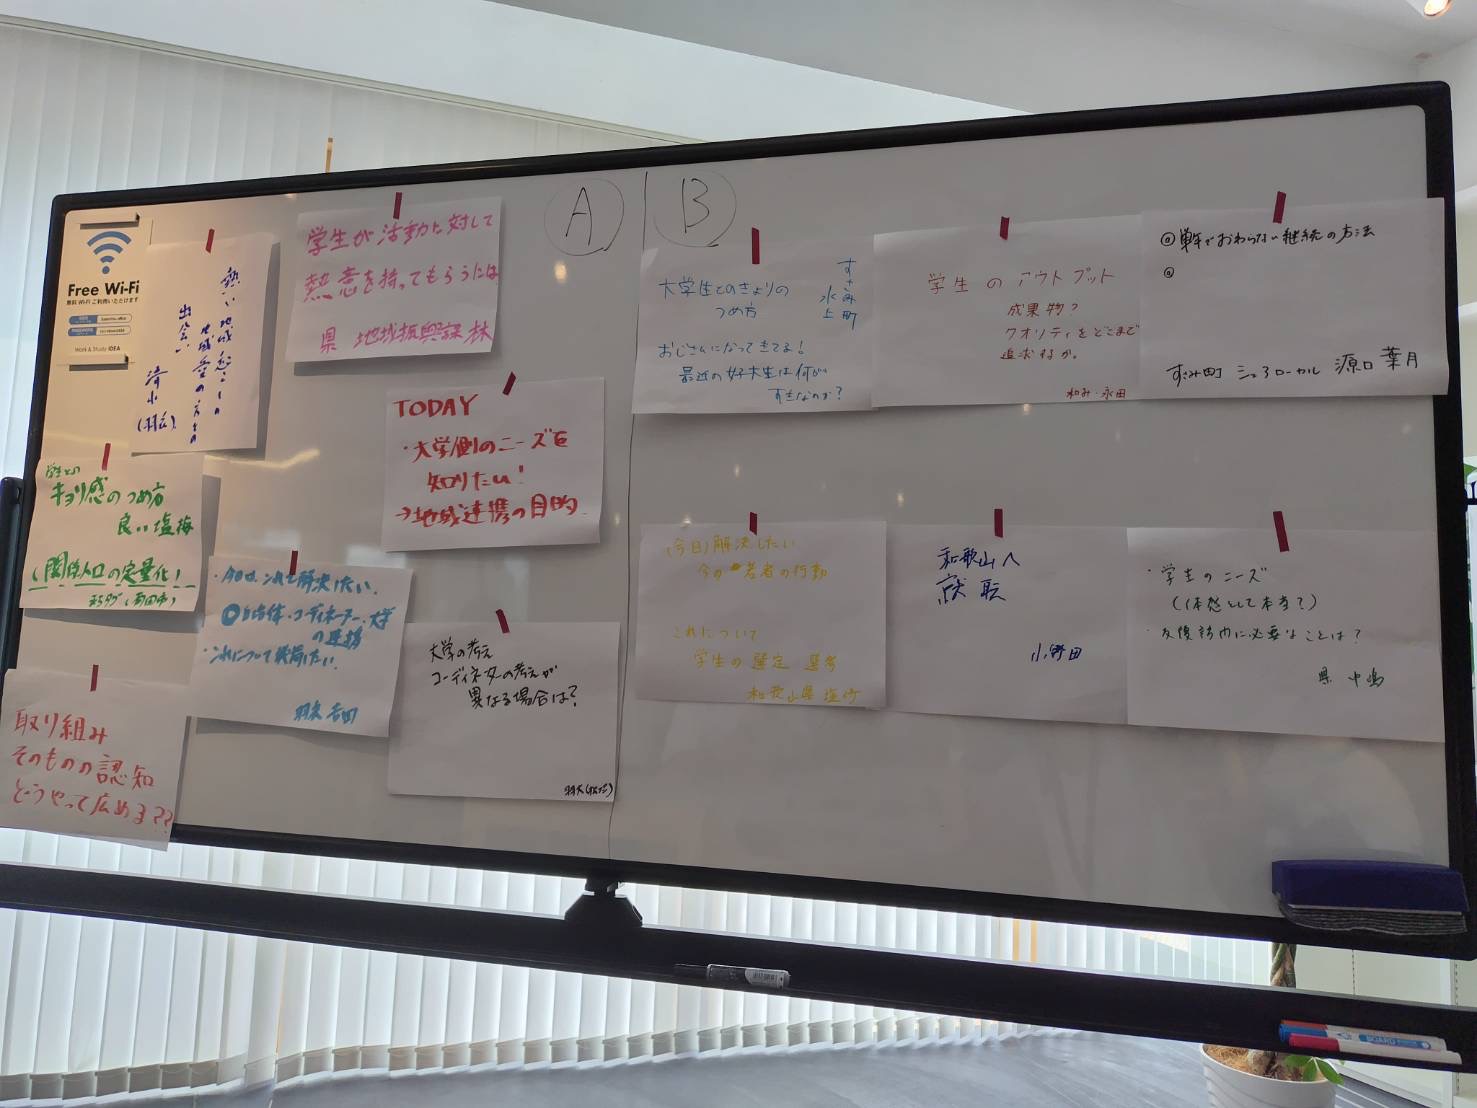 A
B
Free Wi-Fi
無料 Wi-Fi ご利用いただけます
Work & Study IDEA
熱い地域起こしの
地域愛の
出会い
学生が活動に対して
熱意を持ってもらうには
県 地域振興課 林
TODAY
・大学側のニーズを
知りたい!
→地域連携の目的
学生との
キョリ感のつめ方
良い塩梅
関係人口の定量化!
(有田市)
・今日は、これを解決したい。
自治体・コーディネーター・大学
の連携
・これについて
吉田
大学の考え
コーディネーターの考えが
異なる場合は?
取り組み
そのものの認知
どうやって広める??
大学生とのきょりの
つめ方
すさみ町
水上
おじさんになってきてる!
最近の女子大生は何が
すきなのか?
学生のアウトプット
成果物?
クオリティをどこまで
追求するか。
和み・永田
単年でおわらない継続の方法
すさみ町 シュアローカル 源口 葉月
(今日)解決したい
今の若者の行動
これについて
学生の選定 選考
和歌山県 塩崎
和歌山へ
就職
小野田
・学生のニーズ
(体感として本当で)
・支援者内に必要なことは?
県 中嶋